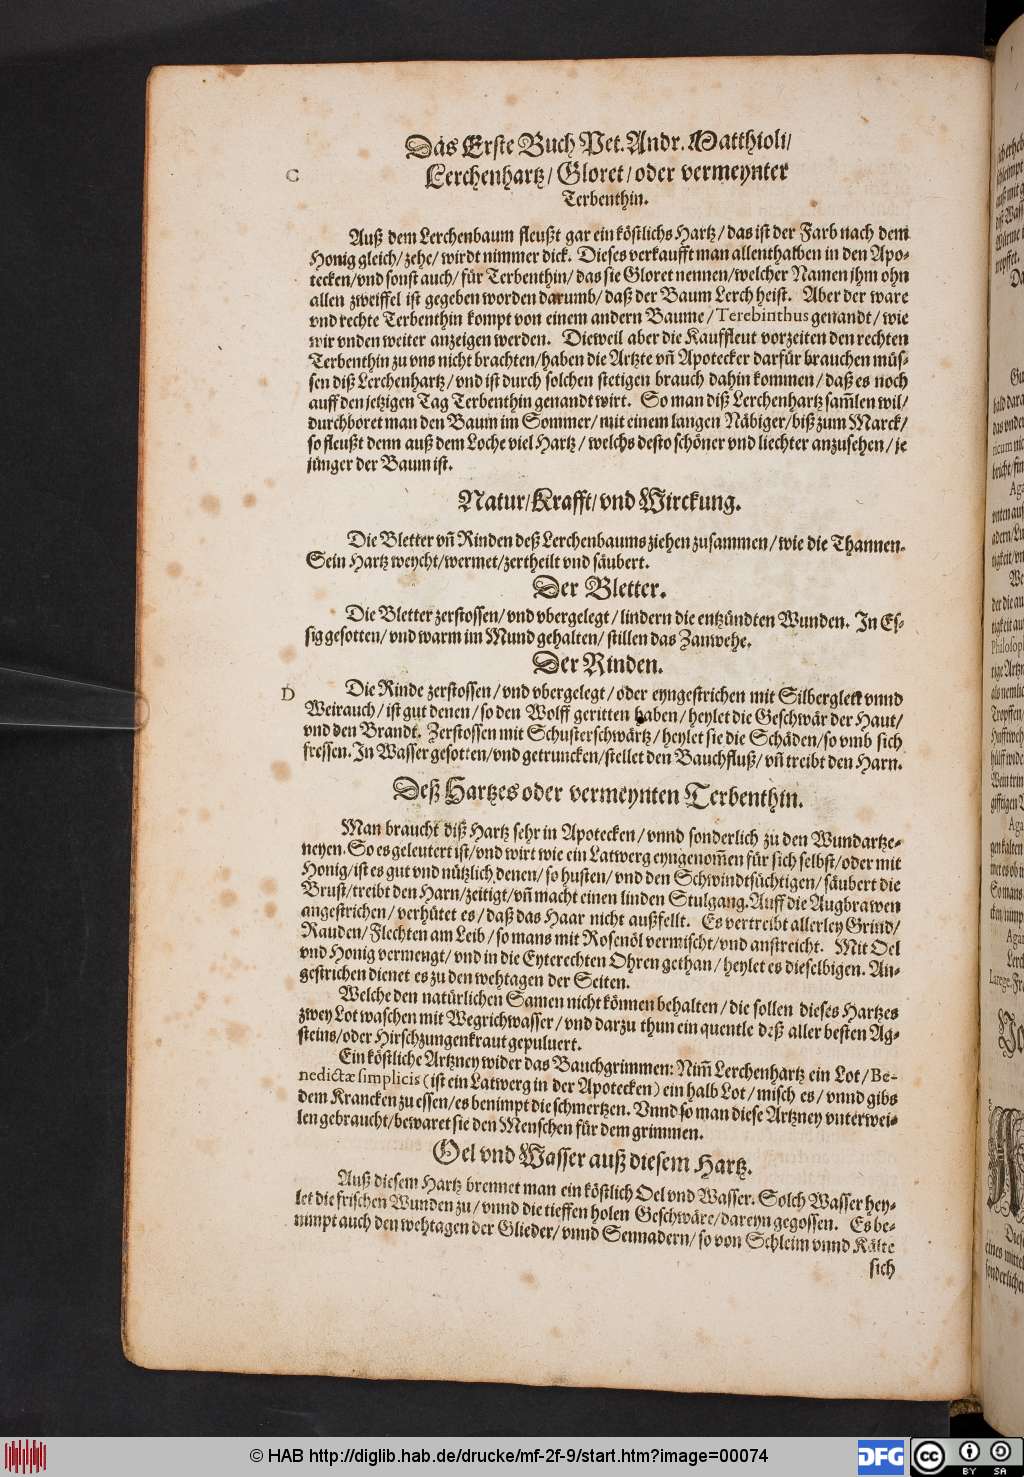 Das Erste Buch Pet. Andr. Matthioli/
C
Lerchenhartz/ Gloret/ oder vermeynter
Terbenthin.
Auß dem Lerchenbaum fleußt gar ein köstlichs Hartz/ das ist der Farb nach dem
Honig gleich/ zehe/ wirdt nimmer dick. Dieses verkaufft man allenthalben in den Apo-
tecken/ vnd sonst auch/ für Terbenthin/ das sie Gloret nennen/ welcher Namen jhm ohn
allen zweiffel ist gegeben worden darumb/ daß der Baum Lerch heist. Aber der ware
vnd rechte Terbenthin kompt von einem andern Baume/ Terebinthus genandt/ wie
wir vnden weiter anzeigen werden. Dieweil aber die Kauffleut vorzeiten den rechten
Terbenthin zu vns nicht brachten/ haben die Artzte vñ Apotecker darfür brauchen müs-
sen diß Lerchenhartz/ vnd ist durch solchen stetigen brauch dahin kommen/ daß es noch
auff den jetzigen Tag Terbenthin genandt wirt. So man diß Lerchenhartz sam̃len wil/
durchboret man den Baum im Sommer/ mit einem langen Näbiger/ biß zum Marck/
so fleußt denn auß dem Loche viel Hartz/ welchs desto schöner vnd liechter anzusehen/ je
jünger der Baum ist.
Natur/ Krafft/ vnd Wirckung.
Die Bletter vñ Rinden deß Lerchenbaums ziehen zusammen/ wie die Thannen.
Sein Hartz weycht/ wermet/ zertheilt vnd säubert.
Der Bletter.
Die Bletter zerstossen/ vnd vbergelegt/ lindern die entzündten Wunden. In Es-
sig gesotten/ vnd warm im Mund gehalten/ stillen das Zanwehe.
Der Rinden.
D
Die Rinde zerstossen/ vnd vbergelegt/ oder eyngestrichen mit Silberglett vnnd
Weirauch/ ist gut denen/ so den Wolff geritten haben/ heylet die Geschwär der Haut/
vnd den Brandt. Zerstossen mit Schusterschwärtz/ heylet sie die Schäden/ so vmb sich
fressen. In Wasser gesotten/ vnd getruncken/ stellet den Bauchfluß/ vñ treibt den Harn.
Deß Hartzes oder vermeynten Terbenthin.
Man braucht diß Hartz sehr in Apotecken/ vnnd sonderlich zu den Wundartze-
neyen. So es geleutert ist/ vnd wirt wie ein Latwerg eyngenom̃en für sich selbst/ oder mit
Honig/ ist es gut vnd nützlich denen/ so husten/ vnd den Schwindtsüchtigen/ säubert die
Brust/ treibt den Harn/ zeitigt/ vñ macht einen linden Stulgang. Auff die Augbrawen
angestrichen/ verhütet es/ daß das Haar nicht außfellt. Es vertreibt allerley Grind/
Rauden/ Flechten am Leib/ so mans mit Rosenöl vermischt/ vnd anstreicht. Mit Oel
vnd Honig vermengt/ vnd in die Eyterechten Ohren gethan/ heylet es dieselbigen. An-
gestrichen dienet es zu den wehtagen der Seiten.
Welche den natürlichen Samen nicht können behalten/ die sollen dieses Hartzes
zwey Lot waschen mit Wegrichwasser/ vnd darzu thun ein quentle deß aller besten Ag-
steins/ oder Hirschzungenkraut gepuluert.
Ein köstliche Artzney wider das Bauchgrimmen: Nim̃ Lerchenhartz ein Lot/ Be-
nedictæ simplicis (ist ein Latwerg in der Apotecken) ein halb Lot/ misch es/ vnnd gibs
dem Krancken zu essen/ es benimpt die schmertzen. Vnnd so man diese Artzney vnterwei-
len gebraucht/ bewaret sie den Menschen für dem grimmen.
Oel vnd Wasser auß diesem Hartz.
Auß diesem Hartz brennet man ein köstlich Oel vnd Wasser. Solch Wasser hey-
let die frischen Wunden zu/ vnnd die tieffen holen Geschwäre/ dareyn gegossen. Es be-
nimpt auch den wehtagen der Glieder/ vnnd Sennadern/ so von Schleim vnnd Kälte
sich
© HAB http://diglib.hab.de/drucke/mf-2f-9/start.htm?image=00074
DFG
cc BY SA